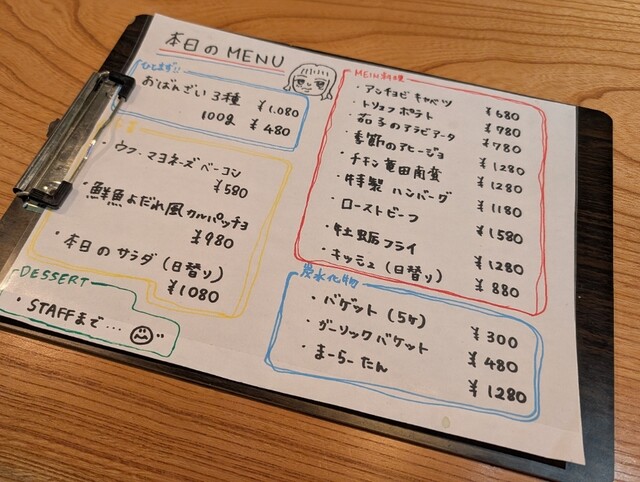 本日のMENU
ひとまず!!
おばんざい 3種 ¥1.080
100g ¥480
・ウフ・マヨネーズベーコン
¥580
・鮮魚よだれ風カルパッチョ
¥980
・本日のサラダ(日替り)
¥1080
DESSERT
・STAFFまで…
MEIN料理
・アンチョビキャベツ ¥680
・トリュフポテト ¥780
・茄子のアラビアータ ¥780
・季節のアヒージョ ¥1280
・チキン竜田南蛮 ¥1280
・特製ハンバーグ ¥1180
・ローストビーフ ¥1580
・牡蠣フライ ¥1280
・キッシュ(日替り) ¥880
炭水化物
・バゲット(5ヶ) ¥300
・ガーリックバケット ¥480
・まーらーたん ¥1280